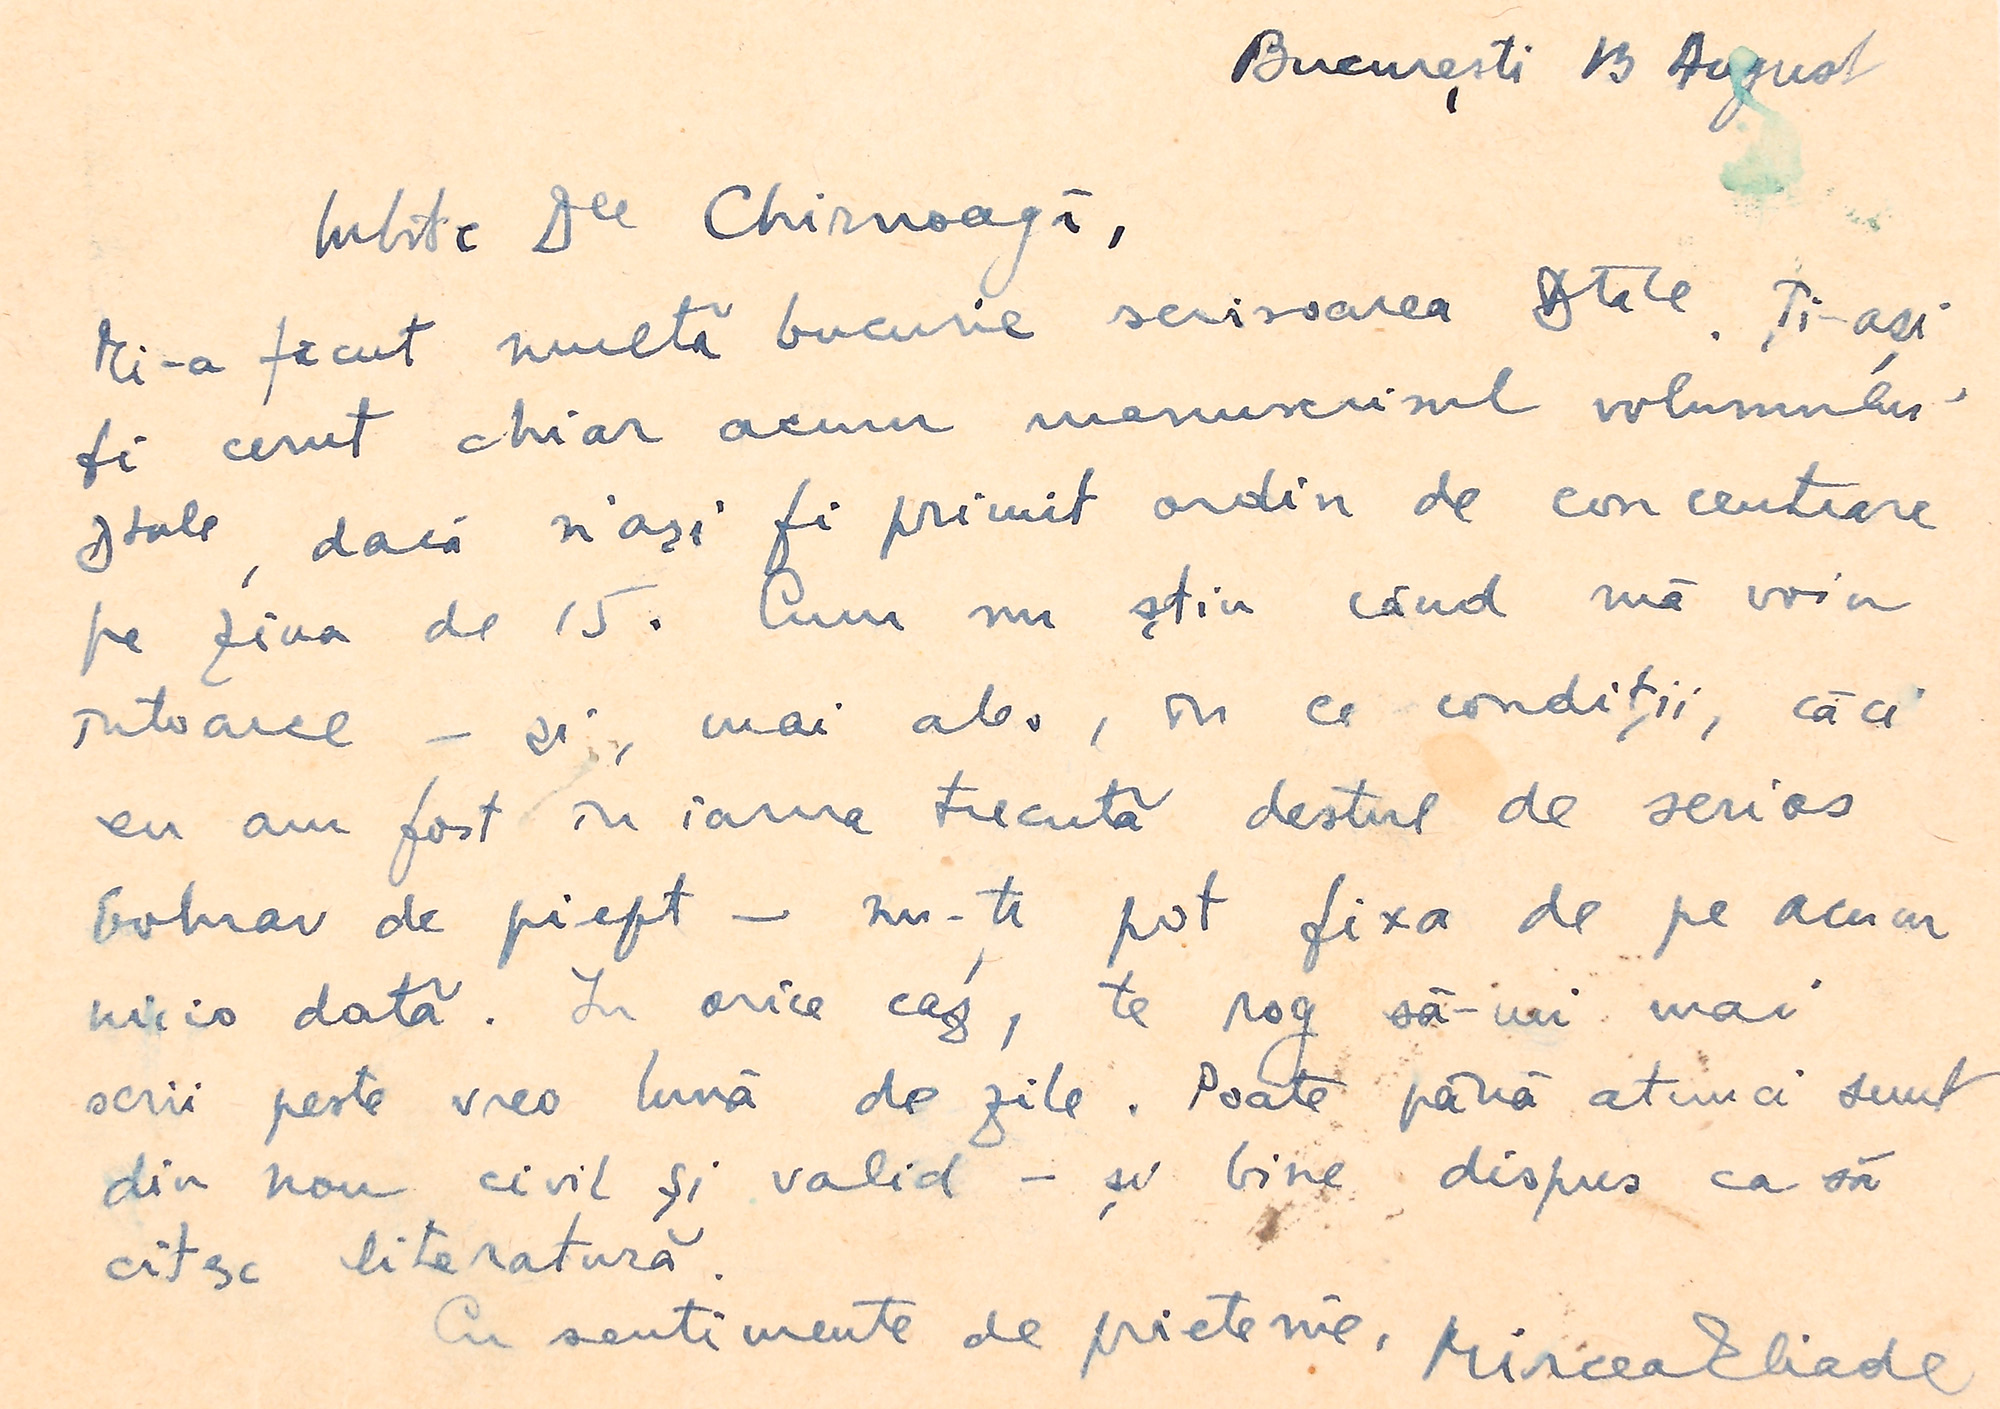 București 13 August
Iubite Dle Chirnoagă,
Mi-a făcut multă bucurie scrisoarea Dtale. Ți-ași
fi cerut chiar acum manuscrisul volumului
Dtale, dacă n'ași fi primit ordin de concentrare
pe ziua de 15. Cum nu știu când mă voiu
întoarce – și, mai ales, în ce condiții, căci
eu am fost în iarna trecută destul de serios
bolnav de piept – nu-ți pot fixa de pe acum
nicio dată. In orice caz, te rog să-mi mai
scrii peste vreo lună de zile. Poate până atunci sunt
din nou civil și valid – și bine dispus ca să
citesc literatură.
Cu sentimente de prietenie, Mircea Eliade